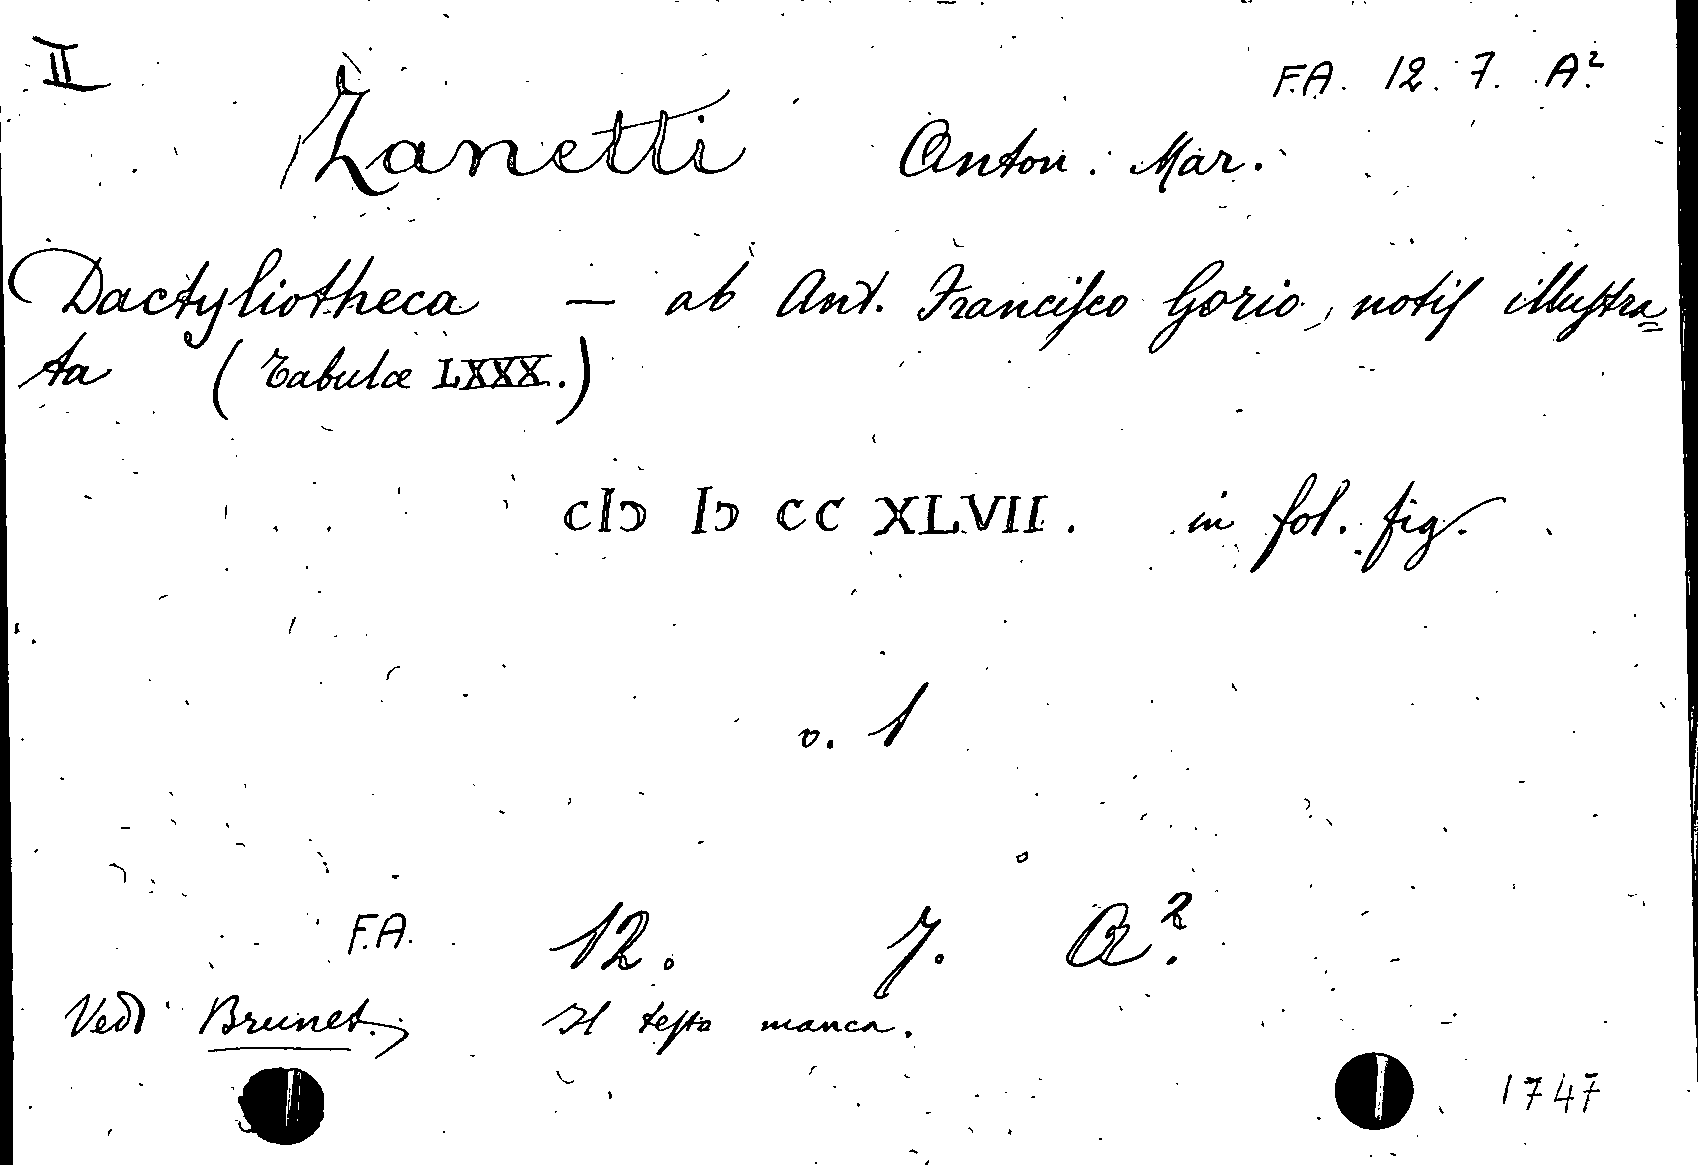 II
F.A. 12. 7. A².
Zanetti Anton. Mar.
Dactyliotheca — ab Ant. Franciſco Gorio, notiſ illuſtra=
ta (Tabulæ LXXX.)
cIↄ Iↄ CC XLVII. in fol. fig.
v. 1
F.A. 12. 7. A².
Vedi Brunet. Il teſto manca.
1747